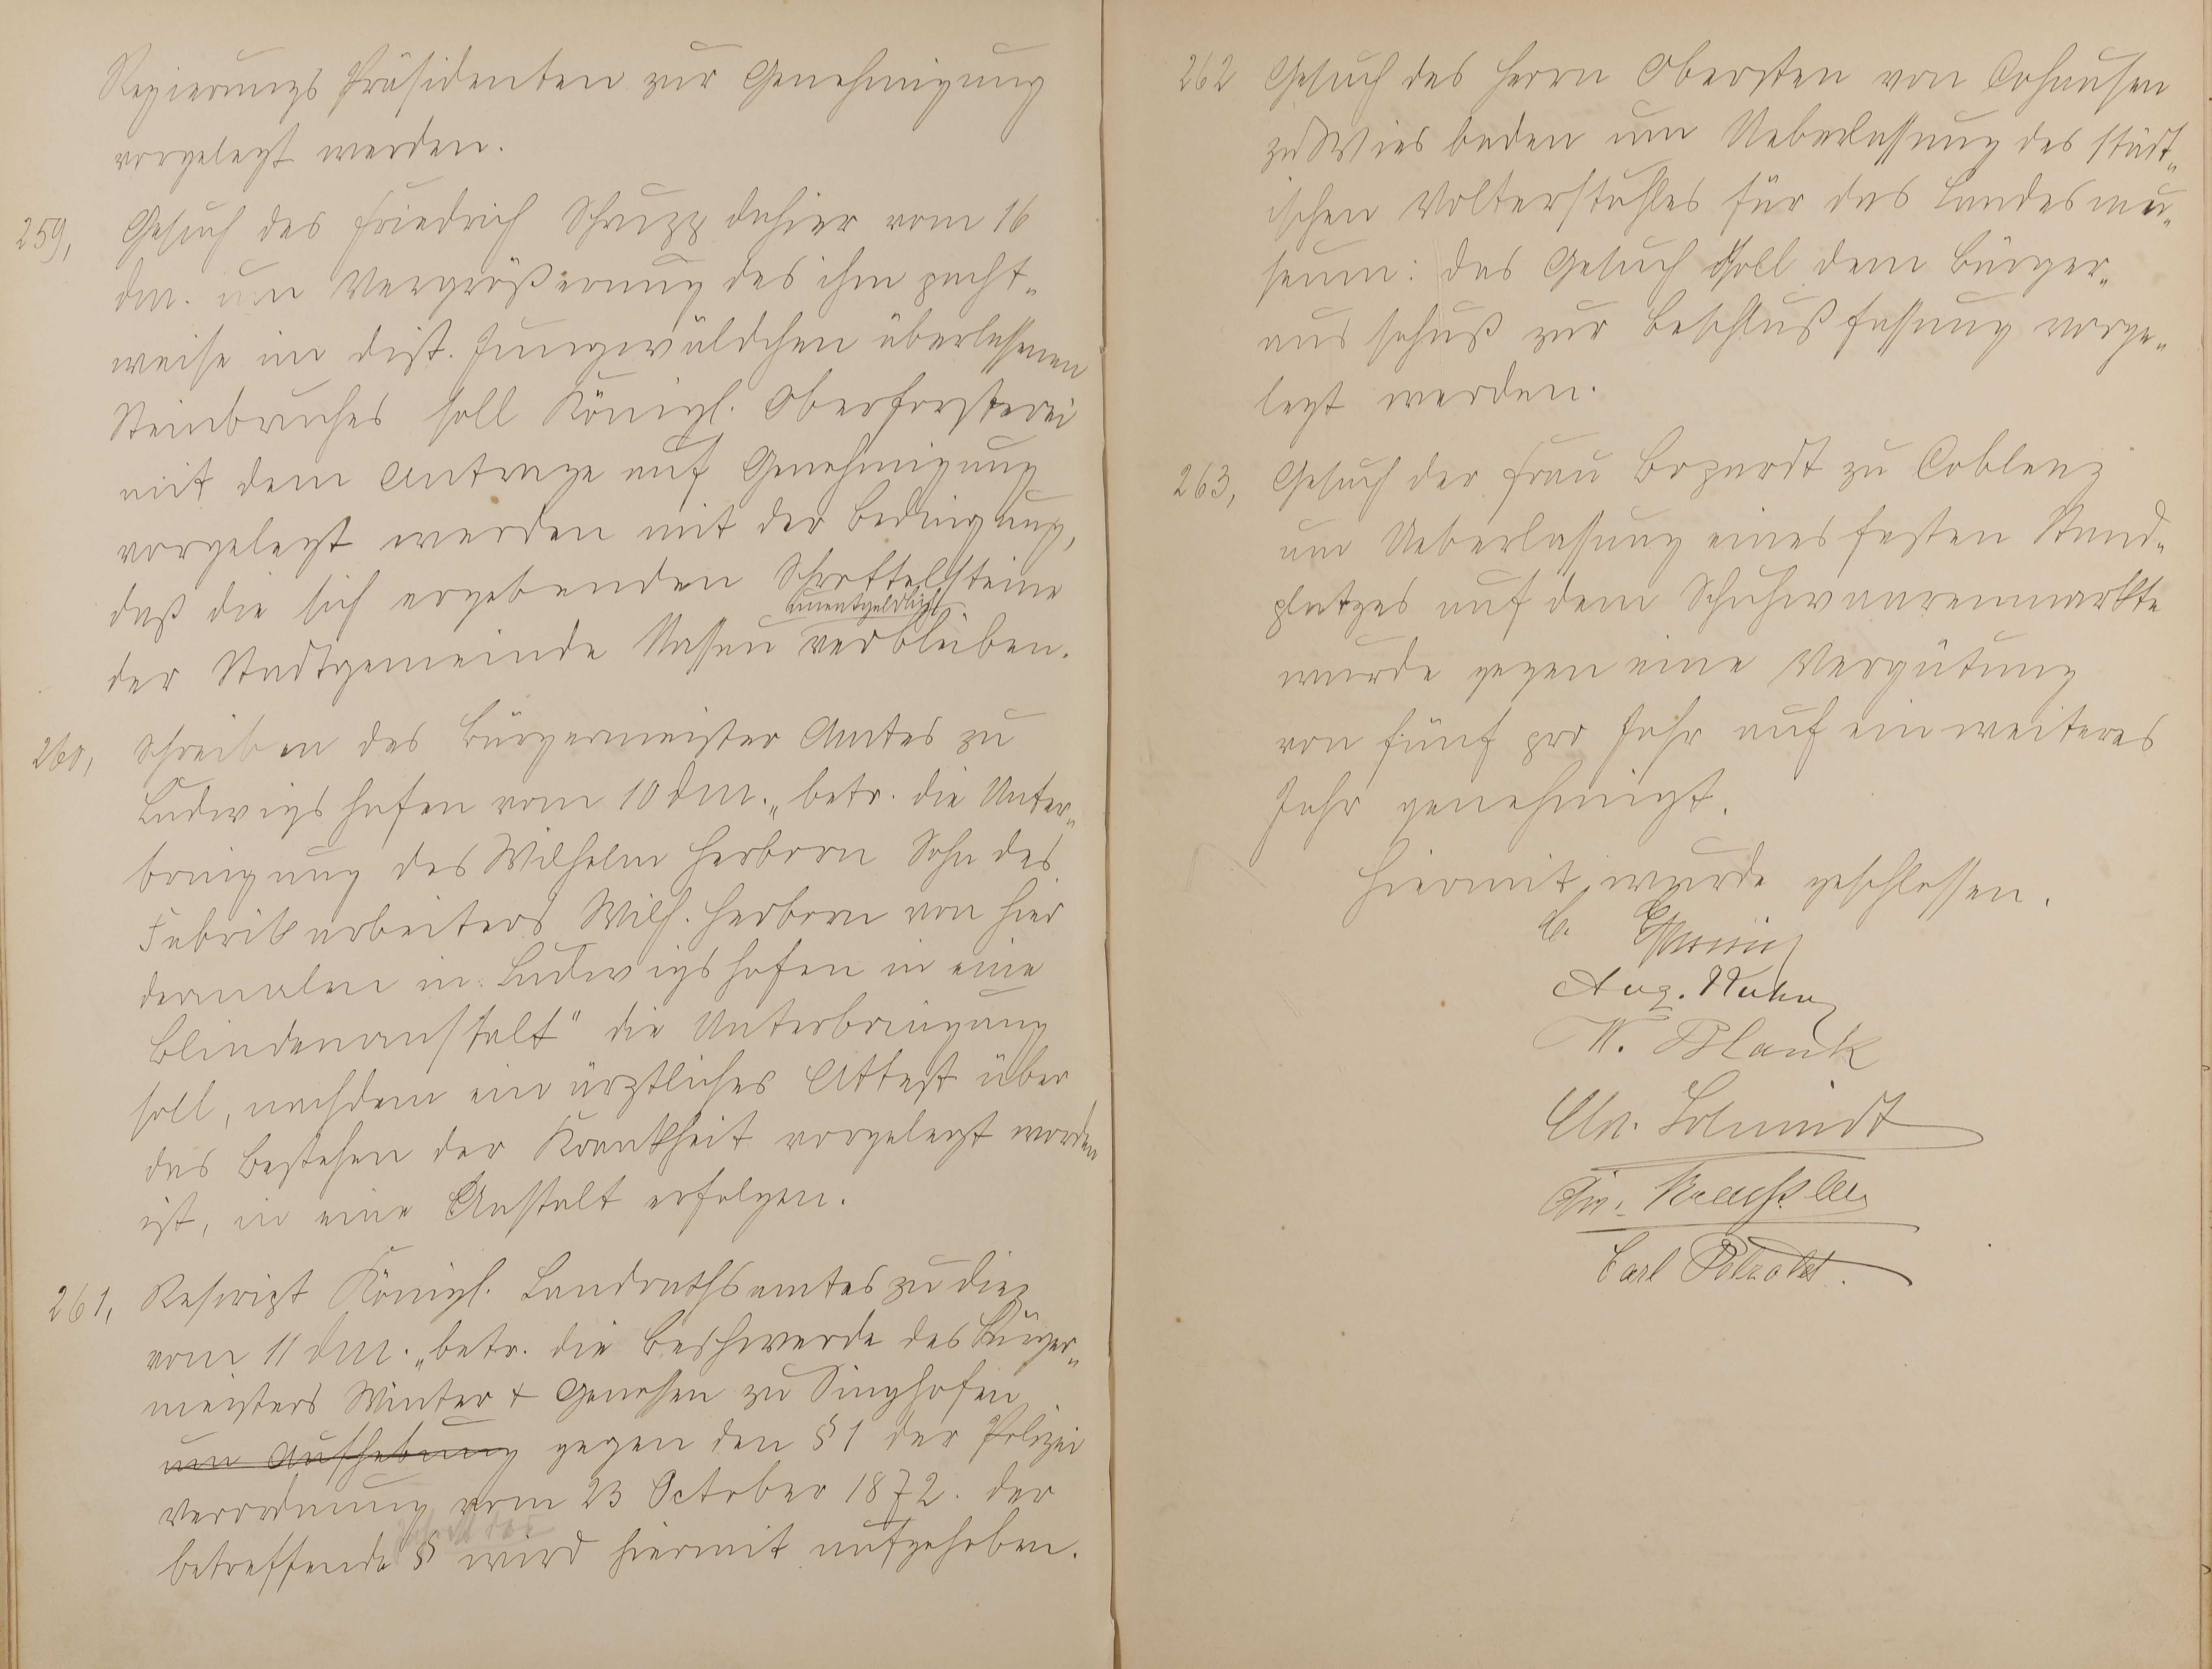 Regierungs Präsidenten zur Genehmigung
vorgelegt werden.
259, Gesuch des Friedrich Schrupp dahier vom 16
dm. um Vergrößerung des ihm pacht„
weise im Dist. Jungwäldchen überlassenen
Steinbruches soll Königl. Oberförsterei
mit dem Antrage auf Genehmigung
vorgelegt werden mit der Bedingung,
daß die sich ergebenden Schrottelsteine
unentgeldlich
der Stadtgemeinde Nassau verbleiben.
260, Schreiben des Bürgermeister Amtes zu
Ludwigshafen vom 10 dm. „betr. die Unter„
bringung des Wilhelm Herborn Sohn des
Fabrikarbeiters Wilh. Herborn von hier
dermalen in Ludwigshafen in eine
Blindenanstalt" die Unterbringung
soll, nachdem ein ärztliches Attest über
das Bestehen der Krankheit vorgelegt worden
ist, in eine Anstalt erfolgen.
261, Rescript Königl. Landrathsamtes zu Diez
vom 11 dm. „betr. die Beschwerde des Bürger„
meisters Winter & Genossen zu Singhofen
um Aufhebung gegen den § 1 der Polizei
verordnung vom 23 October 1872. der
betreffende § wird hiermit aufgehoben.
262 Gesuch des Herrn Obersten von Cohausen
zu Wiesbaden um Ueberlassung des städt„
ischen Volterstuhles für das Landesmu„
seum: das Gesuch soll dem Bürger„
ausschuß zur Beschlußfassung vorge„
legt werden.
263, Gesuch der Frau Bozardt zu Coblenz
um Ueberlassung eines festen Stand„
platzes auf dem Schuhwaarenmarkte
wurde gegen eine Vergütung
von fünf pro Jahr auf ein weiteres
Jahr genehmigt.
Hiermit wurde geschlossen.
Aug. Kuhn
W. Blank
Chr. Schmidt
Carl Petzoldt.